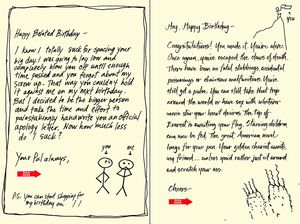 Happy Belated Birthday -
I know I totally suck for spacing your
big day. I was going to lay low and
completely blow you off until enough
time passed and you forgot about my
screw up. That way you couldn't hold
it against me on my next birthday.
But I decided to be the bigger person
and take the time and effort to
painstakingly handwrite you an official
apology letter. Now how much less
do I suck?
Your Pal always,
you
me
P.S. You can start shopping for
my birthday on
!!
Hey, Happy Birthday -
you
Congratulations! You made it. You're alive.
Once again, you've escaped the claws of death.
There have been no fatal stabbings, accidental
poisonings or chainsaw malfunctions. You've
still got a pulse. You can still take that trip
around the world or have sex with whatever
movie star your heart desires. The top of
Everest is awaiting your flag. Starving children
can now be fed. The great American novel
longs for your pen. Your golden chariot awaits,
my friend... unless you'd rather just sit around
and scratch your ass.
Cheers -